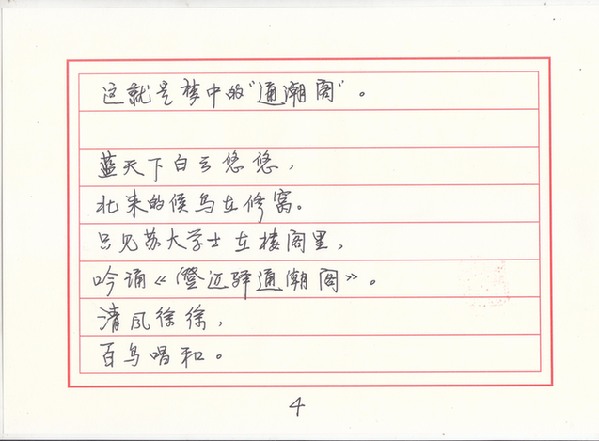 这就是梦中的"通潮阁"。
蓝天下白云悠悠，
北来的候鸟在修窝。
只见苏大学士在楼阁里，
吟诵《澄迈驿通潮阁》。
清风徐徐，
百鸟唱和。
4